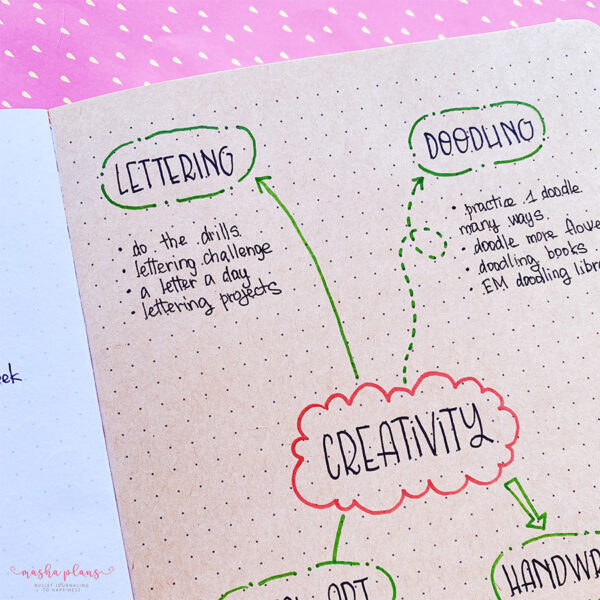 LETTERING
• do the drills
• lettering challenge
• a letter a day
• lettering projects
DOODLING
• practice 1 doodle
many ways
• doodle more
• doodling books
• EM doodling
CREATIVITY
ART
masha plans
BULLET JOURNALING
TO HAPPINESS